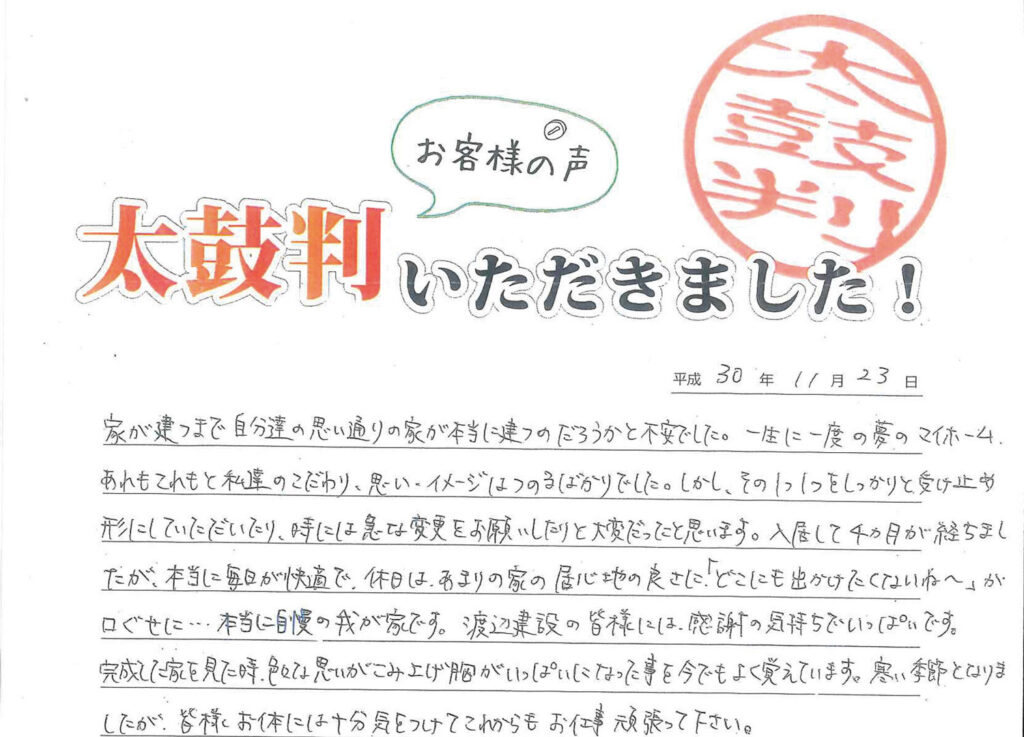 お客様の声
太鼓判
太鼓判いただきました！
平成 30 年 11 月 23 日
家が建つまで自分達の思い通りの家が本当に建つのだろうかと不安でした。一生に一度の夢のマイホーム、
あれもこれもと私達のこだわり、思い・イメージはつのるばかりでした。しかし、その1つ1つをしっかりと受け止め
形にしていただいたり、時には急な変更をお願いしたりと大変だったと思います。入居して4ヵ月が経ちまし
たが、本当に毎日が快適で、休日は、あまりの家の居心地の良さに、「どこにも出かけたくないね〜」が
口ぐせに…本当に自慢の我が家です。渡辺建設の皆様には、感謝の気持ちでいっぱいです。
完成した家を見た時、色々な思いがこみ上げ胸がいっぱいになった事を今でもよく覚えています。寒い季節となりま
したが、皆様、お体には十分気をつけてこれからもお仕事頑張って下さい。